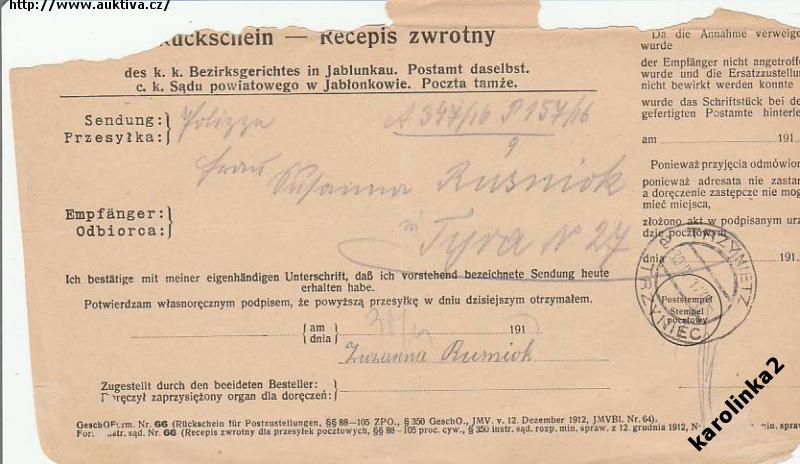 http://www.auktiva.cz/
Rückschein — Recepis zwrotny
des k. k. Bezirksgerichtes in Jablunkau. Postamt daselbst.
c. k. Sądu powiatowego w Jabłonkowie. Poczta tamże.
Sendung:
Przesyłka:
Polizza A 347/16 P 157/16
9
Frau Susanna Rusniok
Empfänger:
Odbiorca:
in Tyra N 27
Ich bestätige mit meiner eigenhändigen Unterschrift, daß ich vorstehend bezeichnete Sendung heute
erhalten habe.
Potwierdzam własnoręcznym podpisem, że powyższą przesyłkę w dniu dzisiejszym otrzymałem.
am
dnia
191
Zuzanna Rusniok
Zugestellt durch den beeideten Besteller:
Doręczył zaprzysiężony organ dla doręczeń:
GeschOForm. Nr. 66 (Rückschein für Postzustellungen, §§ 88—105 ZPO., § 350 GeschO., JMV. v. 12. Dezember 1912, JMVBl. Nr. 64).
For. instr. sąd. Nr. 66 (Recepis zwrotny dla przesyłek pocztowych, §§ 88—105 proc. cyw., § 350 instr. sąd. rozp. min. spraw. z 12. grudnia 1912, N
min. spraw
Da die Annahme verweige
wurde
der Empfänger nicht angetroffe
wurde und die Ersatzzustellun
nicht bewirkt werden konnte
wurde das Schriftstück bei de
gefertigten Postamte hinterle
am 191
Ponieważ przyjęcia odmówion
ponieważ adresata nie zastan
a doręczenie zastępcze nie mog
mieć miejsca,
złożono akt w podpisanym urz
dzie pocztowym
dnia 191
TRZYNIETZ
TRZYNIEC
Poststempel
Stempel
pocztowy
karolinka2